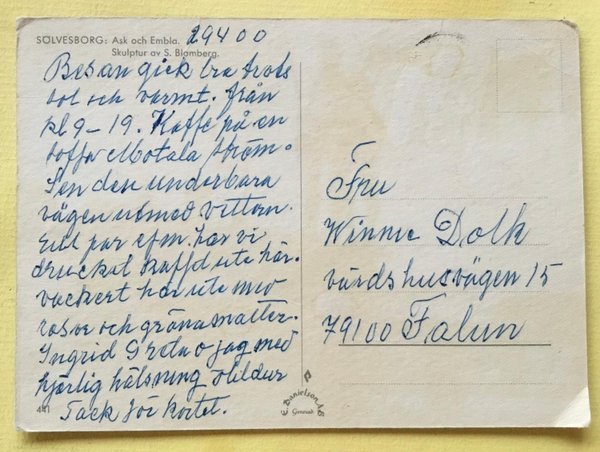 SÖLVESBORG: Ask och Embla.
Skulptur av S. Blomberg.
29400
Resan gick bra trots
sol och varmt. från
kl 9-19. Kaffe på en
Motala ström.
Sen den underbara
vägen utmed vettern.
Ett par efm. har vi
druckit kaffe ute här.
vackert här ute med
rosor och gräsmattor.
Ingrid Greta o jag med
hjärlig hälsning Hildur
Tack för kortet.
441
Fru
Winnie Dolk
värdshusvägen 15
79100 Falun
E. Danielson AB
Grenadi